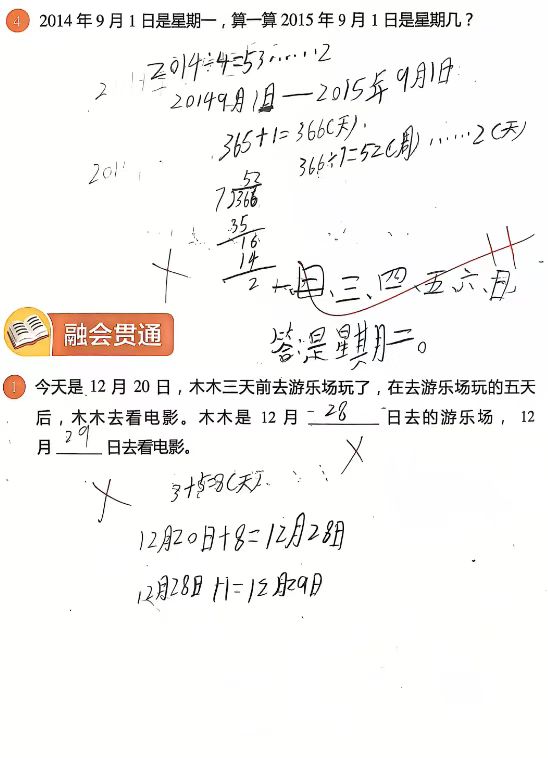 4 2014 年 9 月 1 日是星期一，算一算 2015 年 9 月 1 日是星期几？
2014÷4=53……2
20149月1日—2015年9月1日
365+1=366(天).
366÷7=52(周)……2(天)
52
7 366
35
16
14
2
一、二、三、四、五、六、日
答：是星期二。
融会贯通
1 今天是 12 月 20 日，木木三天前去游乐场玩了，在去游乐场玩的五天
后，木木去看电影。木木是 12 月 28 日去的游乐场，12
月 29 日去看电影。
3+5=8(天).
12月20日+8=12月28日
12月28日+1=12月29日